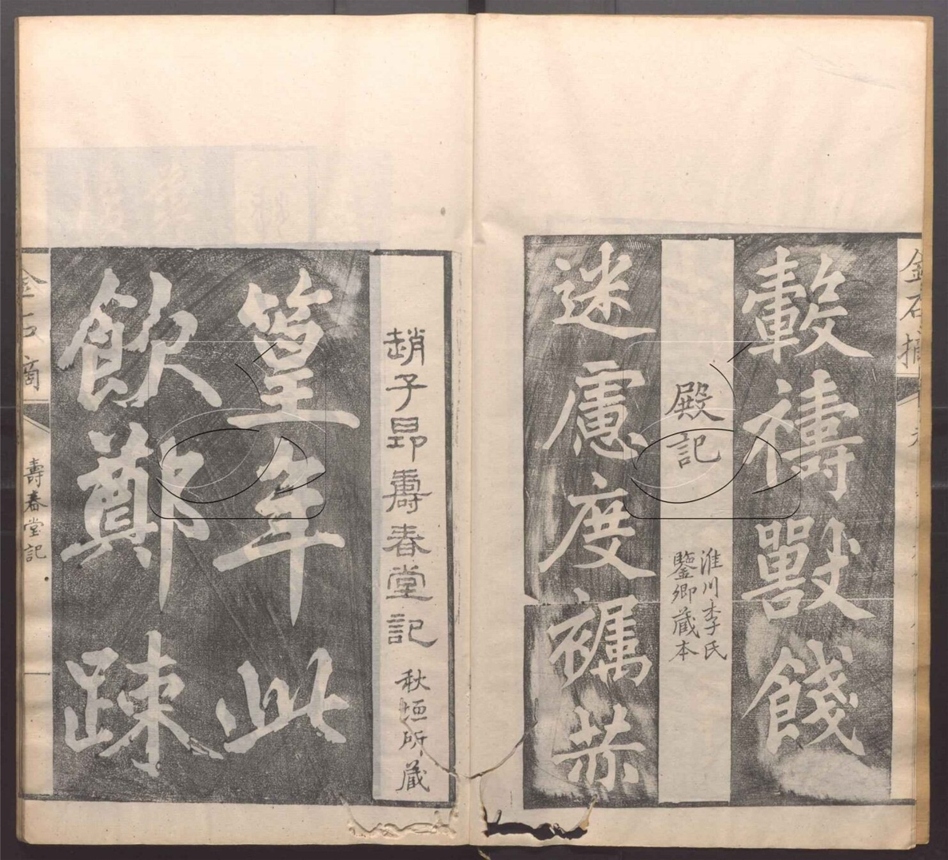 金石摘
轂禱獸餞
殿記
淮川李氏
鑒卿藏本
迷慮度襦恭
趙子昂壽春堂記
秋垣所藏
篁年此
飲鄭疎
金石摘
壽春堂記